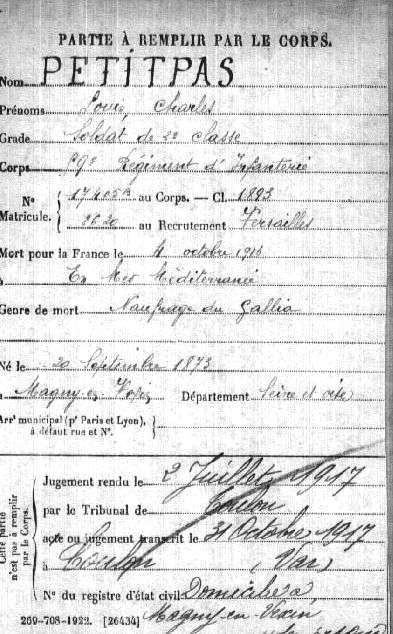 PARTIE À REMPLIR PAR LE CORPS.
Nom PETITPAS
Prénoms Louis, Charles
Grade Soldat de 2e classe
Corps Régiment d'Infanterie
No Matricule. au Corps. — Cl. 1893
au Recrutement Versailles
Mort pour la France le 4 octobre 1916
à En Mer Méditerranée
Genre de mort Naufrage du Gallia
Né le 20 Septembre 1873
à Magny en Vexin Département Seine et Oise
Arrt municipal (pr Paris et Lyon), à défaut rue et No.
Cette partie n'est pas à remplir par le Corps.
Jugement rendu le 2 Juillet 1917
par le Tribunal de Toulon
acte ou jugement transcrit le 31 Octobre 1917
à Toulon (Var)
No du registre d'état civil Domicilié à
269-708-1922. [26434] Magny-en-Vexin